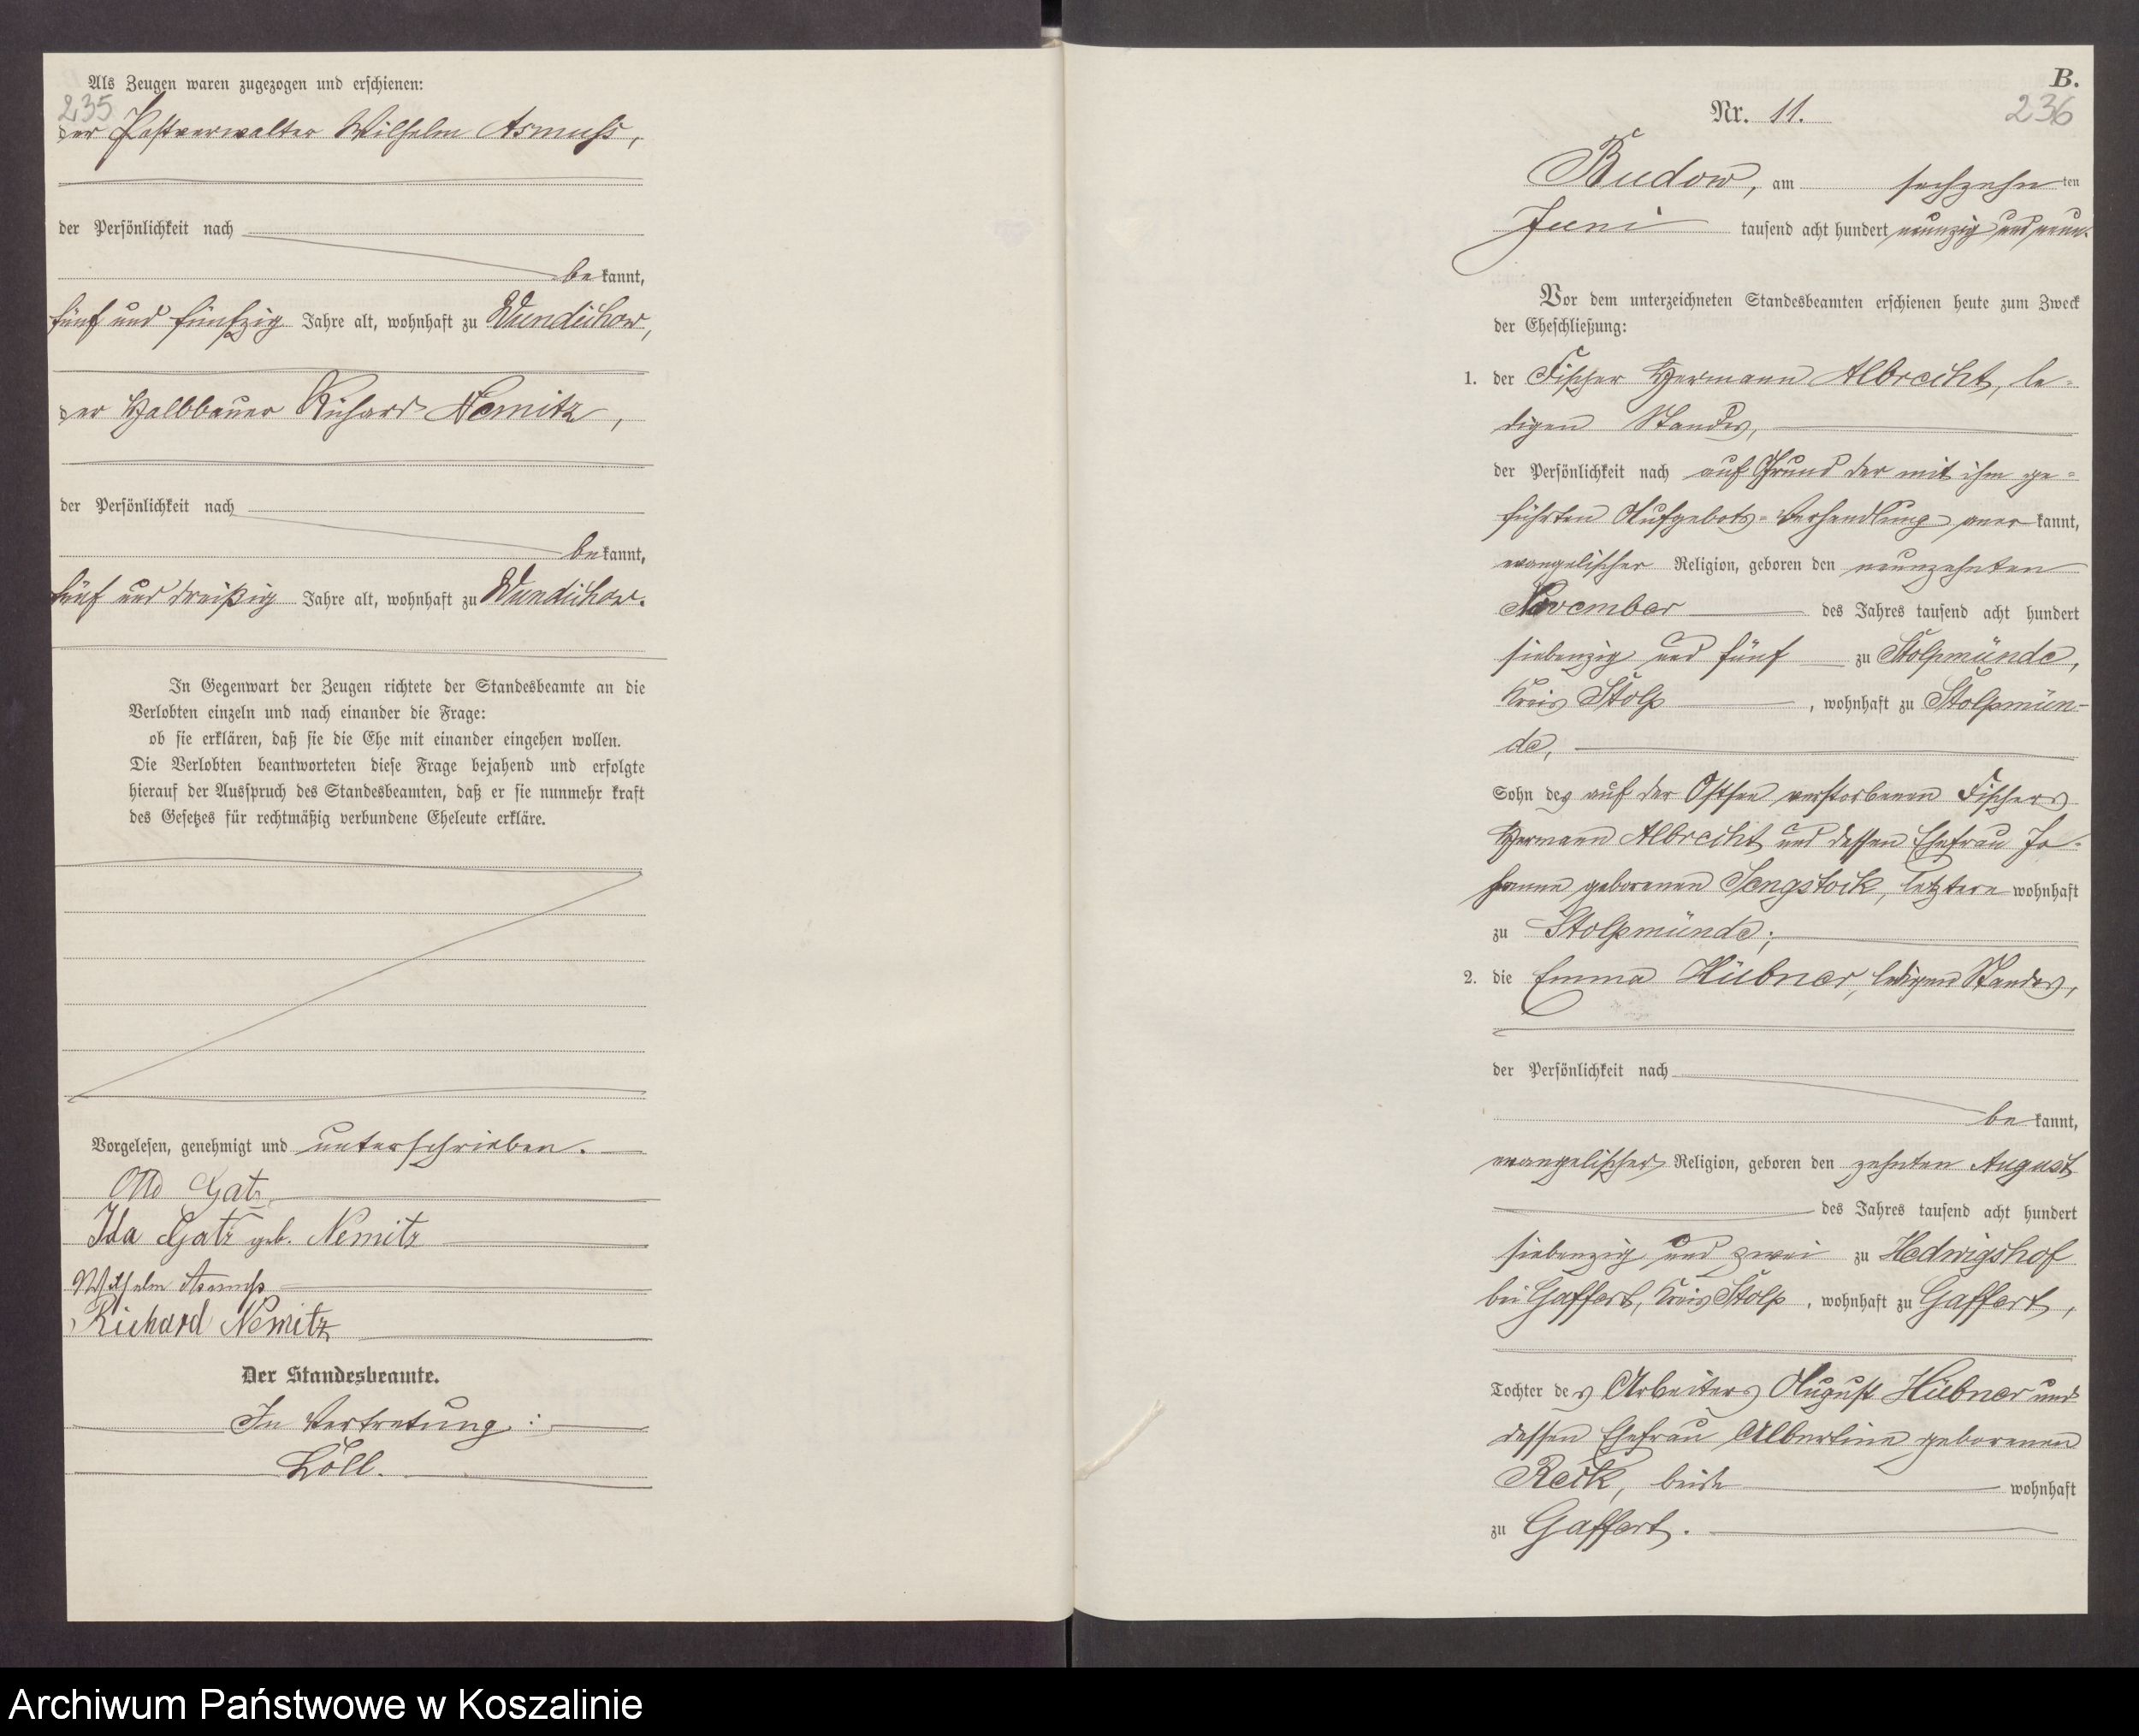 Als Zeugen waren zugezogen und erschienen:
235
der Postverwalter Wilhelm Asmuß,
der Persönlichkeit nach
be kannt,
fünf und fünfzig Jahre alt, wohnhaft zu Wundichow,
der Halbbauer Richard Nemitz,
der Persönlichkeit nach
bekannt,
fünf und dreißig Jahre alt, wohnhaft zu Wundichow.
In Gegenwart der Zeugen richtete der Standesbeamte an die
Verlobten einzeln und nach einander die Frage:
ob sie erklären, daß sie die Ehe mit einander eingehen wollen.
Die Verlobten beantworteten diese Frage bejahend und erfolgte
hierauf der Ausspruch des Standesbeamten, daß er sie nunmehr kraft
des Gesetzes für rechtmäßig verbundene Eheleute erkläre.
Vorgelesen, genehmigt und unterschrieben.
Otto Gatz
Ida Gatz geb. Nemitz
Wilhelm Asmuß
Richard Nemitz
Der Standesbeamte.
In Vertretung:
Löll.
B.
Nr. 11.
236
Budow, am sechzehn ten
Juni tausend acht hundert neunzig und neun.
Vor dem unterzeichneten Standesbeamten erschienen heute zum Zweck
der Eheschließung:
1. der Fischer Hermann Albrecht, le=
digen Standes,
der Persönlichkeit nach auf Grund der mit ihm ge=
führten Aufgebots=Verhandlung aner kannt,
evangelischer Religion, geboren den neunzehnten
November des Jahres tausend acht hundert
siebenzig und fünf zu Stolpmünde,
Kreis Stolp, wohnhaft zu Stolpmün-
de,
Sohn des auf der Ostsee verstorbenen Fischers
Hermann Albrecht und dessen Ehefrau Jo-
hanne geborenen Sengstock, letztere wohnhaft
zu Stolpmünde;
2. die Emma Hübner, ledigen Standes,
der Persönlichkeit nach
be kannt,
evangelischer Religion, geboren den zehnten August
des Jahres tausend acht hundert
siebenzig und zwei zu Hedwigshof
bei Gaffert, Kreis Stolp, wohnhaft zu Gaffert,
Tochter des Arbeiters August Hübner und
dessen Ehefrau Albertine geborenen
Reck, beide wohnhaft
zu Gaffert.
Archiwum Państwowe w Koszalinie